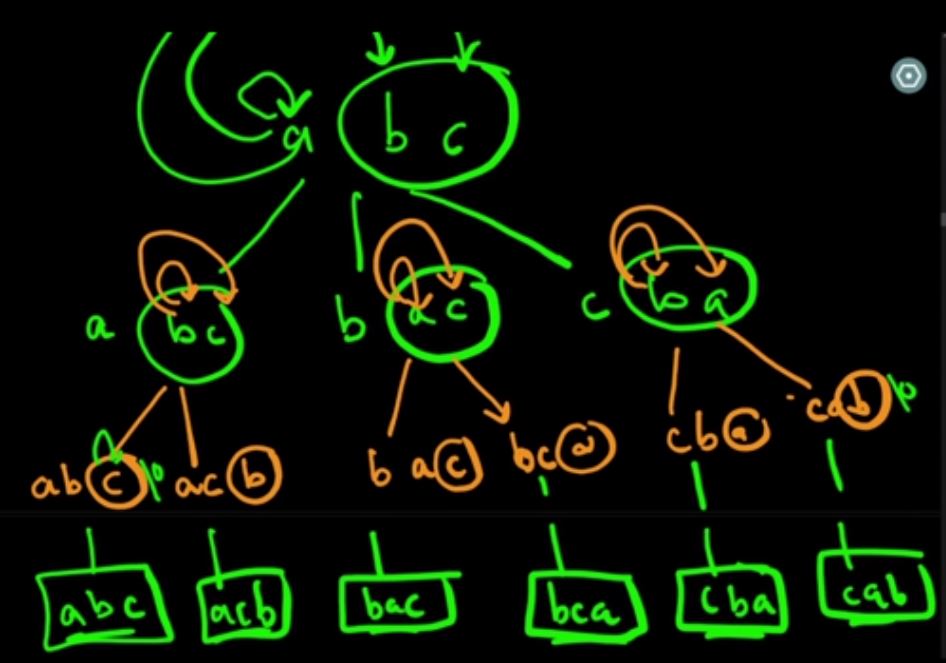 a b c
a bc b ac c ba
abc p acb b ac bca cba cab p
abc acb bac bca cba cab